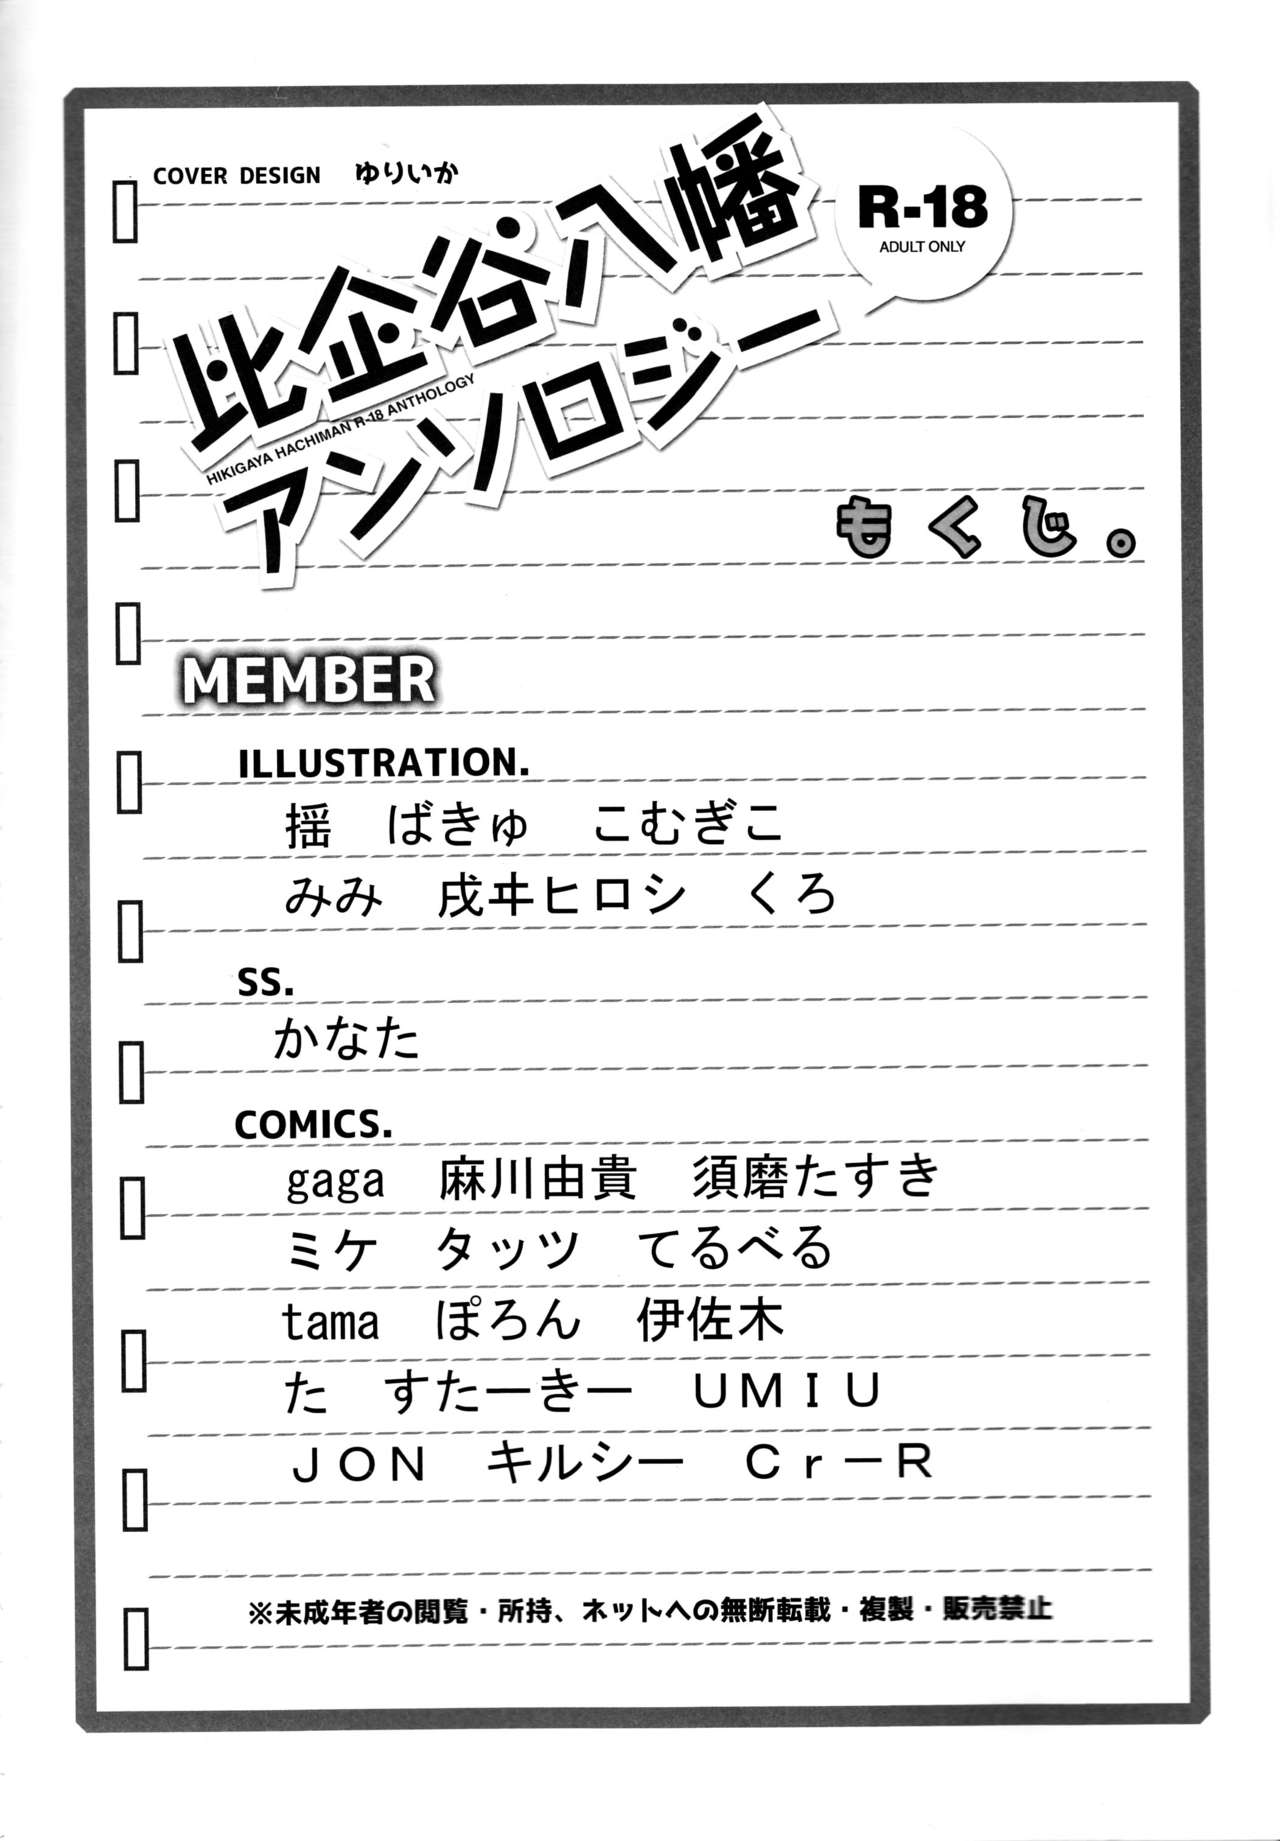 COVER DESIGN ゆりいか
比企谷八幡
HIKIGAYA HACHIMAN R-18 ANTHOLOGY
アンソロジー
R-18
ADULT ONLY
もくじ。
MEMBER
ILLUSTRATION.
揺 ばきゅ こむぎこ
みみ 戌ヰヒロシ くろ
SS.
かなた
COMICS.
gaga 麻川由貴 須磨たすき
ミケ タッツ てるべる
tama ぽろん 伊佐木
た すたーきー ＵＭＩＵ
ＪＯＮ キルシー Ｃｒ－Ｒ
※未成年者の閲覧・所持、ネットへの無断転載・複製・販売禁止